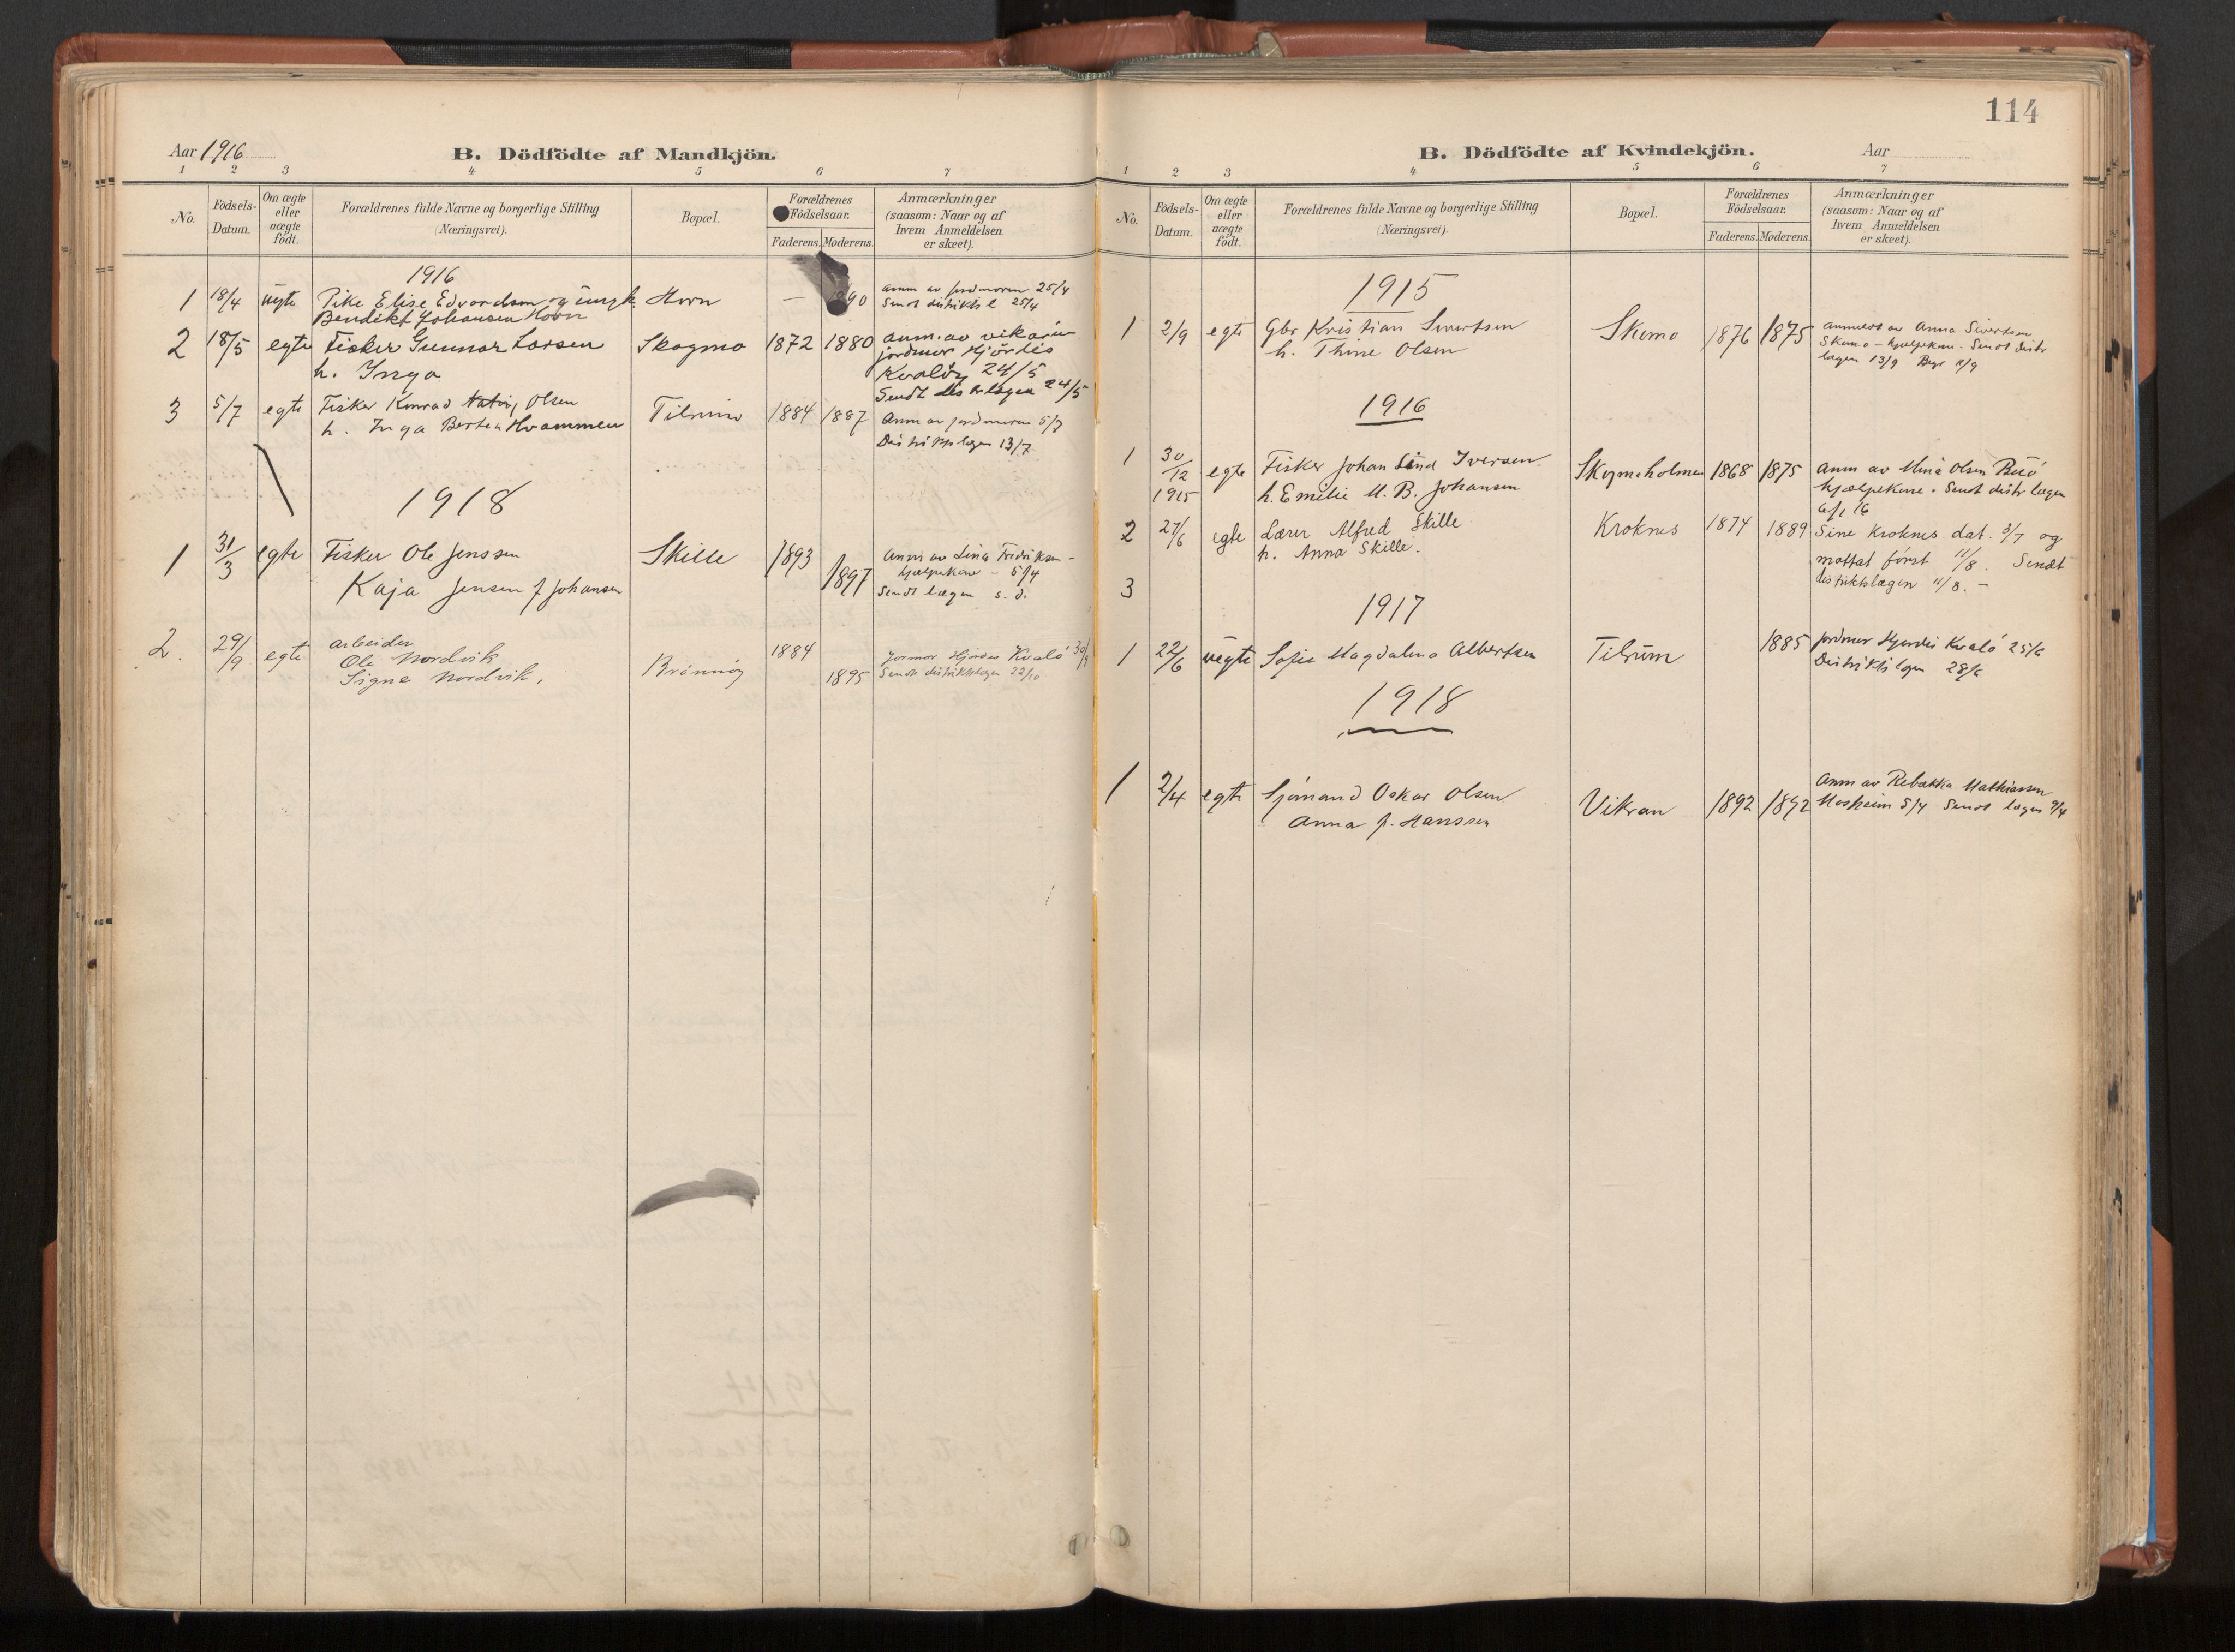 Aar 1916
B. Dödfödte af Mandkjön.
1 2 3 4 5 6 7
No. Födsels-Datum. Om ægte eller uægte födt. Forældrenes fulde Navne og borgerlige Stilling (Næringsvei). Bopæl. Forældrenes Födselsaar. Faderens. Moderens. Anmærkninger (saasom: Naar og af hvem Anmeldelsen er skeet).
1916
1 18/4 uegte Pike Elise Edvardsen og ungk. Horn — 1890 anm av jordmoren 25/4
Bendikt Johansen Horn Sendt distriktsl 25/4
2 18/5 egte Fisker Gunnar Larsen Skogmo 1872 1880 anm. av vikarie
h. Inga jordmor Hjördis
Kvalöy 24/5
Sendt distr.lægen 24/5
3 5/7 egte Fisker Konrad Olsen Tilrum 1884 1887 Anm av jordmoren 5/7
h. Inga Bertea Hvammen Distriktslægen 13/7
1918
1 31/3 egte Fisker Ole Jenssen Skille 1893 Anm av Lina Fredriksen -
Kaja Jensen f Johansen 1897 hjælpekone - 5/4
Sendt lægen s. d.
2. 29/9 egte arbeider
Ole Nordvik Brönnöy 1884 Jormor Hjördis Kvalö 30/9
Signe Nordvik. 1895 Sendt distriktslægen 22/10
114
B. Dödfödte af Kvindekjön.
Aar
1 2 3 4 5 6 7
No. Födsels-Datum. Om ægte eller uægte födt. Forældrenes fulde Navne og borgerlige Stilling (Næringsvei). Bopæl. Forældrenes Födselsaar. Faderens. Moderens. Anmærkninger (saasom: Naar og af hvem Anmeldelsen er skeet).
1915
1 2/9 egte Gbr Kristian Sivertsen Skemo 1876 1875 anmeldt av Anna Sivertsen
h. Thine Olsen Skemo - hjælpekone - Sendt distr
lægen 13/9 Begr 11/9
1916
1 30/12 1915 egte Fisker Johan Iversen Skogmoholmen 1868 1875 Anm av Mina Olsen
h. Emilie M. B. Johansen hjælpekone. Sendt distr lægen
6/1 16
2 27/6 egte Lærer Alfred Skille Kroknes 1874 1889 Sine Kroknes dat. 3/7 og
h. Anna Skille. mottat först 11/8. Sendt
distriktslægen 11/8. -
3
1917
1 22/6 uegte Sofie Magdalena Albertsen Tilrum 1885 jordmor Hjördis Kvalö 25/6
Distriktslægen 28/6
1918
1 2/4 egte Sjömand Oskar Olsen Vikran 1892 1892 Anm av Rebekka Mathiassen
Anna f. Hanssen Mosheim 5/4 Sendt lægen 9/4